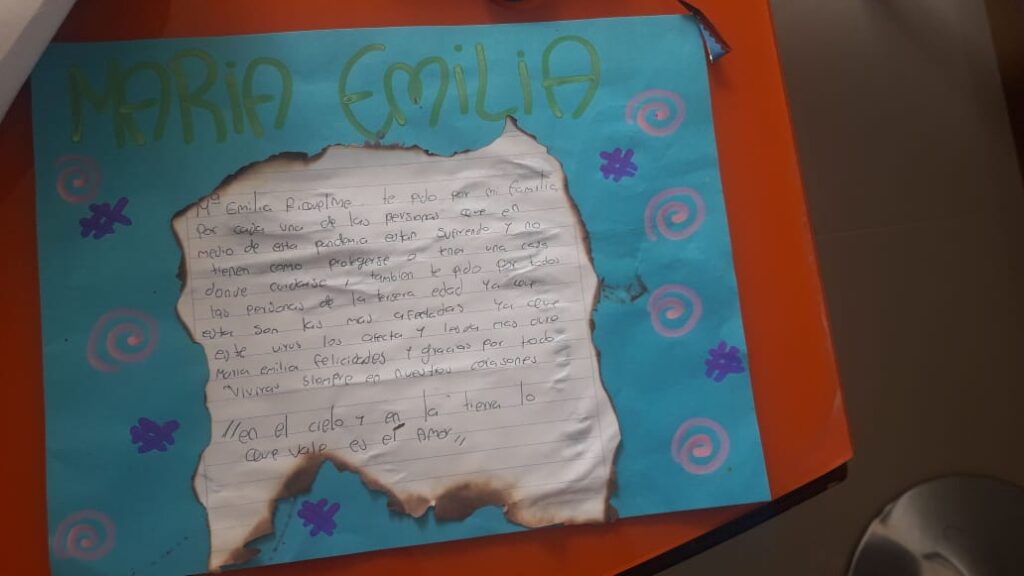 MARIA EMILIA
Mª Emilia Ricuplme te pido por mi familia
por cada una de las personas que en
medio de esta pandemia estan sufriendo y no
tienen como protegerse o tener una casa
donde cuidarse, tambien te pido por todos
las personas de la tersera edad ya que
estas son las mas afectadas ya que
este virus los afecta y mas duro
Maria emilia felicidades y gracias por todo
"Viviras siempre en nuestros corasones
//en el cielo y en la tierra lo
que vale es el Amor//